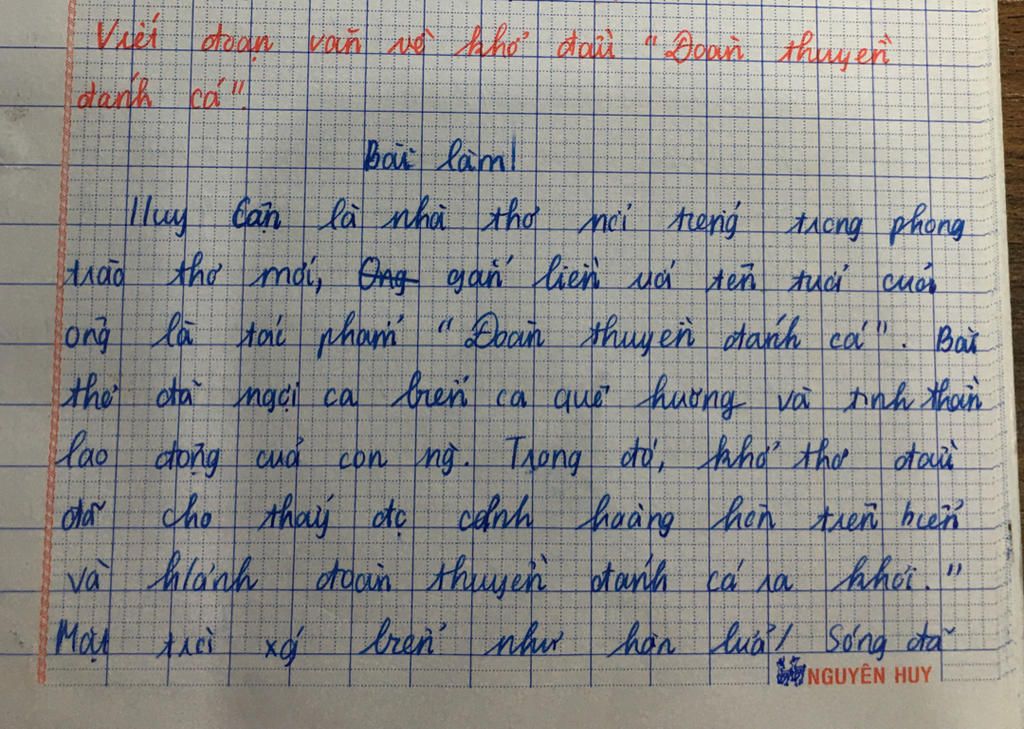 Viết đoạn văn về khổ đầu "Đoàn thuyền
đánh cá".
Bài làm
Huy Cận là nhà thơ nổi tiếng trong phong
trào thơ mới, Ông gắn liền với tên tuổi của
ông là tác phẩm "Đoàn thuyền đánh cá". Bài
thơ đã ngợi ca biển cả quê hương và tinh thần
lao động của con ng. Trong đó, khổ thơ đầu
đã cho thấy đc cảnh hoàng hôn trên biển
và h/ảnh đoàn thuyền đánh cá ra khơi. "
Mặt trời biển như hòn lửa / Sóng đã
NGUYÊN HUY